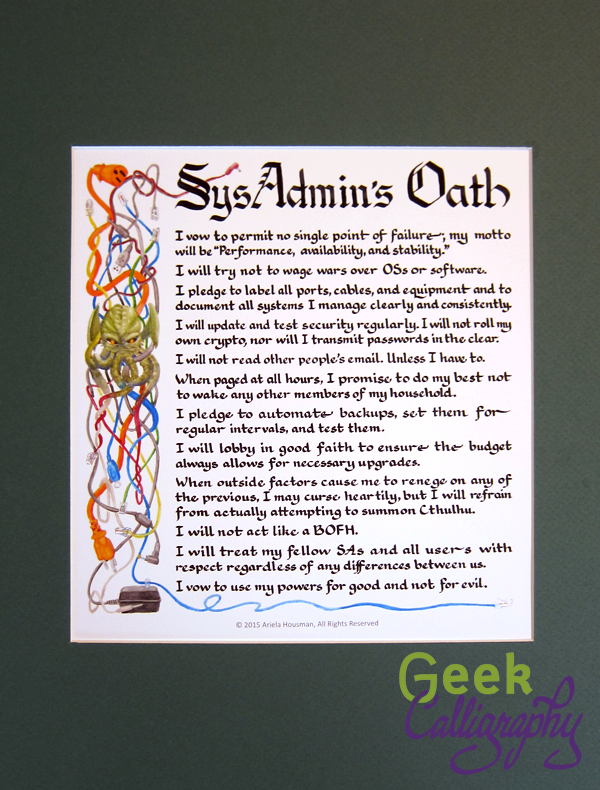 SysAdmin's Oath
I vow to permit no single point of failure; my motto
will be "Performance, availability, and stability."
I will try not to wage wars over OSs or software.
I pledge to label all ports, cables, and equipment and to
document all systems I manage clearly and consistently.
I will update and test security regularly. I will not roll my
own crypto, nor will I transmit passwords in the clear.
I will not read other people's email. Unless I have to.
When paged at all hours, I promise to do my best not
to wake any other members of my household.
I pledge to automate backups, set them for
regular intervals, and test them.
I will lobby in good faith to ensure the budget
always allows for necessary upgrades.
When outside factors cause me to renege on any of
the previous, I may curse heartily, but I will refrain
from actually attempting to summon Cthulhu.
I will not act like a BOFH.
I will treat my fellow SAs and all users with
respect regardless of any differences between us.
I vow to use my powers for good and not for evil.
© 2015 Ariela Housman, All Rights Reserved
Geek
Calligraphy